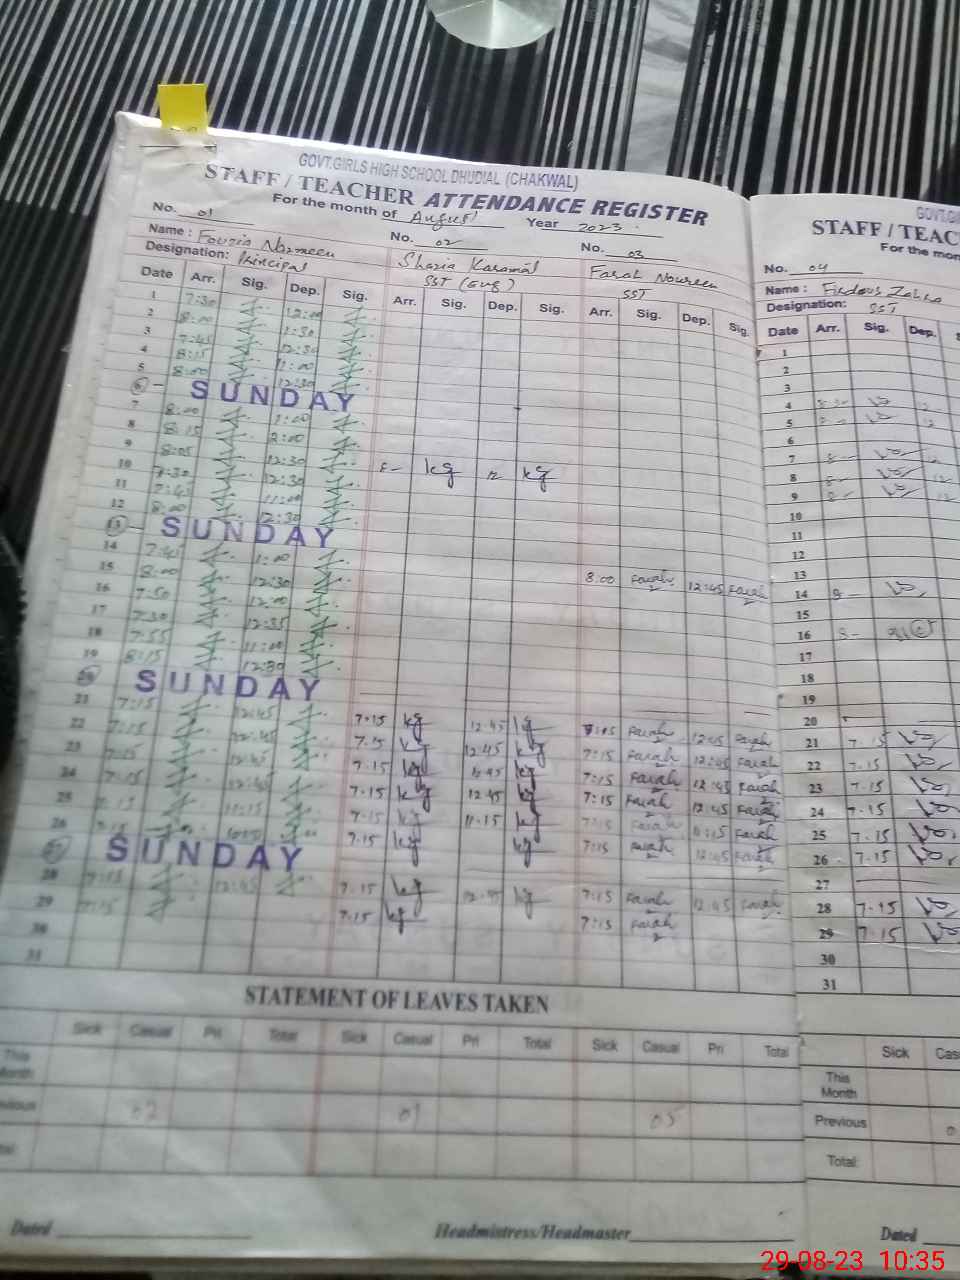 GOVT.GIRLS HIGH SCHOOL DHUDIAL (CHAKWAL)
STAFF / TEACHER ATTENDANCE REGISTER
For the month of August Year 2023
No. 01 No. 02 No. 03
Name : Fouzia Nazneen Shazia Karamal Farah Noureen
Designation: Principal SST (Eng) SST
Date Arr. Sig. Dep. Sig. Arr. Sig. Dep. Sig. Arr. Sig. Dep. Sig.
1 7:30 12:00
2 8:00 1:30
3 7:45 12:30
4 8:15 11:00
5 8:00 12:30
6 SUNDAY
7 8:00 1:00
8 8:15 2:00
9 8:05 12:30
10 7:30 12:30 8- kg 12 kg
11 7:45 11:00
12 8:00 12:30
13 SUNDAY
14 7:45 1:00
15 8:00 12:30 8:00 Farah 12:45 Farah
16 7:50 12:00
17 7:30 12:35
18 7:55 11:00
19 8:15 12:30
20 SUNDAY
21 7:15 12:45 7.15 kg 12.45 kg 7:15 Farah 12:45 Farah
22 7:15 12:45 7.15 kg 12.45 kg 7:15 Farah 12:45 Farah
23 7:15 12:45 7.15 kg 12.45 kg 7:15 Farah 12:45 Farah
24 7:15 12:45 7.15 kg 12.45 kg 7:15 Farah 12:45 Farah
25 7:15 11:15 7.15 kg 11.15 kg 7:15 Farah 11:15 Farah
26 7:15 7.15 kg kg 7:15 Farah 12:45 Farah
27 SUNDAY
28 7:15 12:45 7.15 kg 12.45 kg 7:15 Farah 12:45 Farah
29 7:15 7.15 kg 7:15 Farah
30
31
STATEMENT OF LEAVES TAKEN
Sick Casual Pri Total Sick Casual Pri Total Sick Casual Pri Total
This
Month
02 01 05
Dated Headmistress/Headmaster
GOVT.G
STAFF / TEAC
For the mon
No. 04
Name : Firdous Zahra
Designation: SST
Date Arr. Sig. Dep.
1
2
3
4 12
5 8- 12
6
7 8- 12
8 8- 12
9 8- 12
10
11
12
13
14 8-
15
16 8-
17
18
19
20
21 7.15
22 7.15
23 7.15
24 7.15
25 7.15
26 7.15
27
28 7.15
29 7.15
30
31
Sick Cas
This
Month
Previous 0
Total:
Dated
29-08-23 10:35